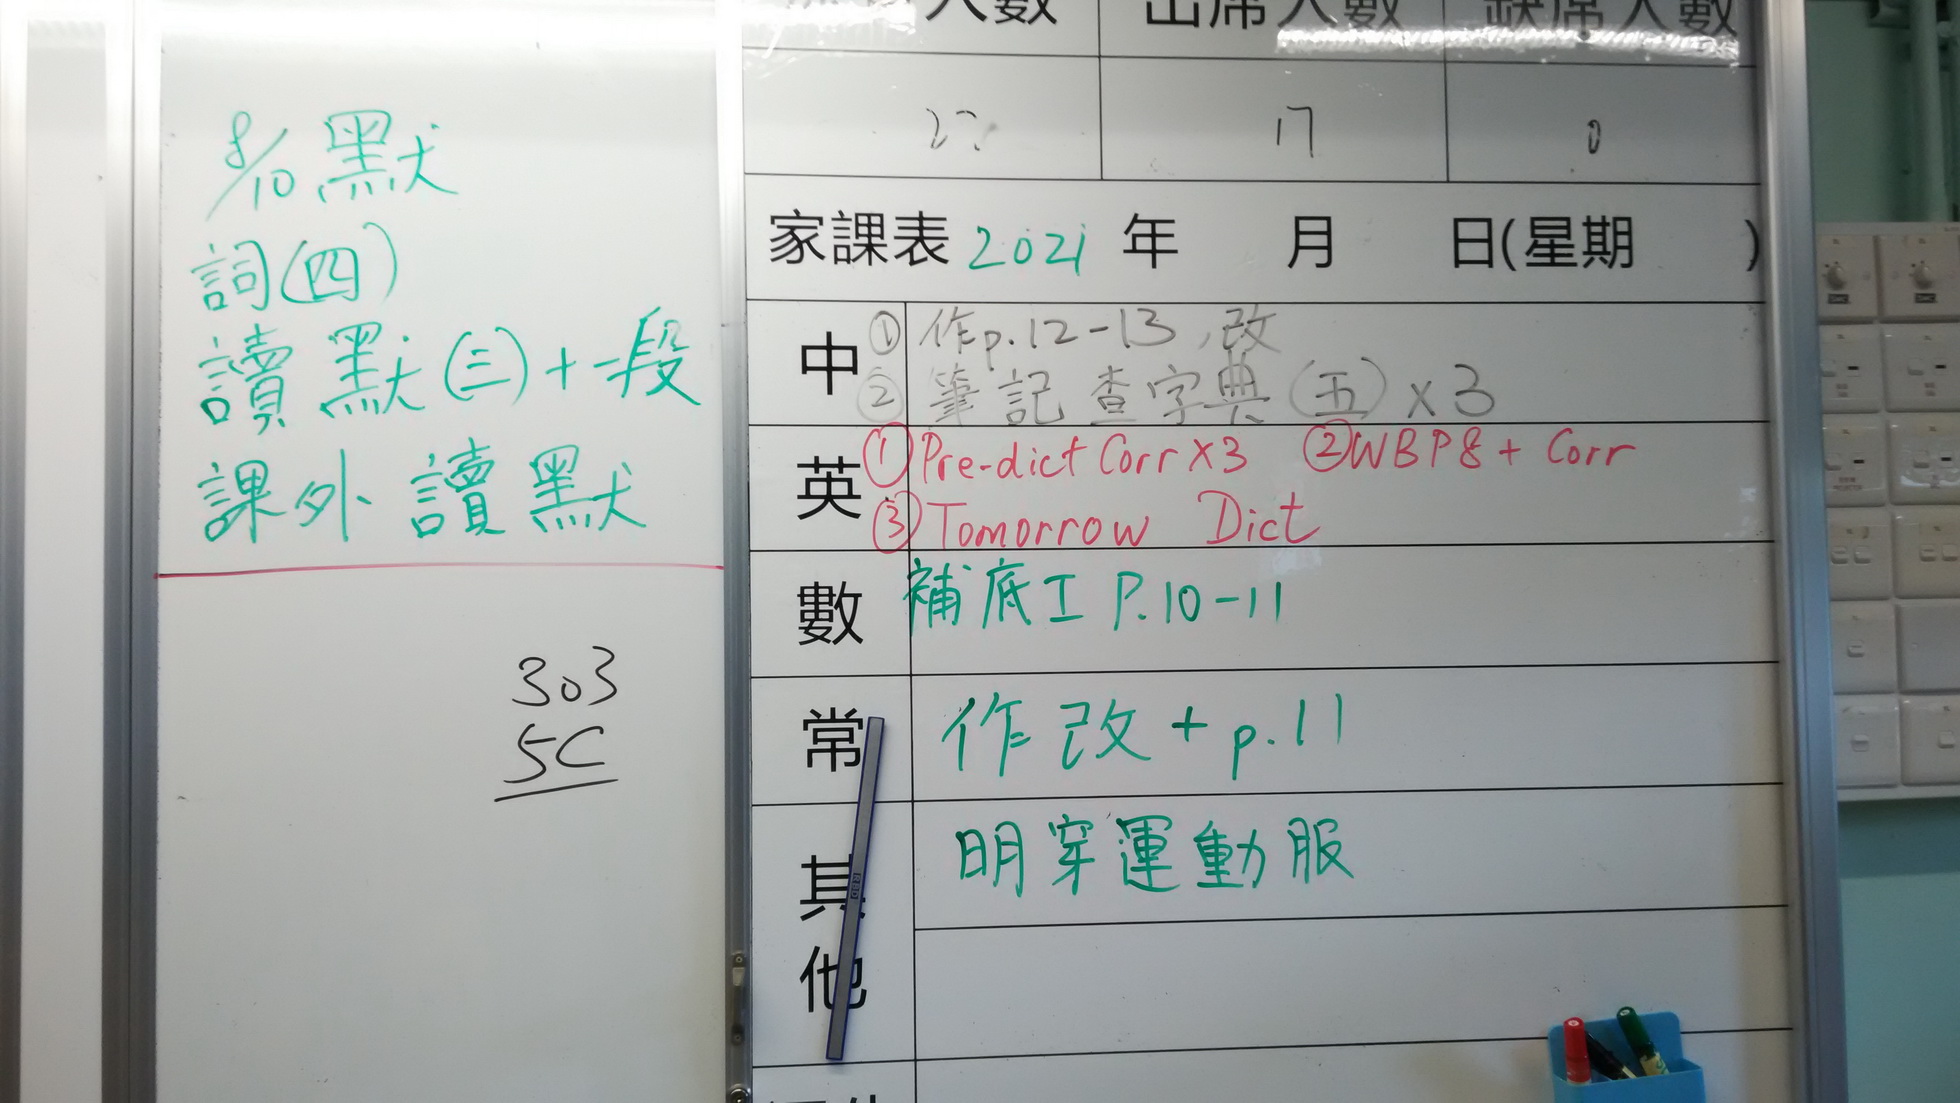 8/10 默
詞(四)
讀默(三)+一段
課外讀默
303
5C
人數 出席人數 缺席人數
17 0
家課表 2021 年 月 日(星期 )
中 ① 作p.12-13,改
② 筆記 查字典(五)x3
英 ① Pre-dict Corr x3 ② WB P8 + Corr
③ Tomorrow Dict
數 補底工 P.10-11
常 作改 + p.11
其他 明穿運動服